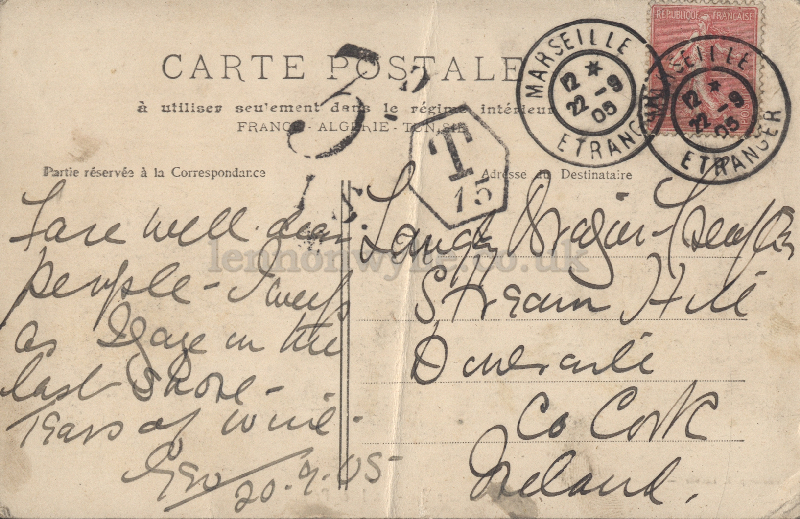 CARTE POSTALE
à utiliser seulement dans le régime intérieur
FRANCE - ALGÉRIE - TUNISIE
REPUBLIQUE FRANÇAISE
MARSEILLE
12 *
22 - 9
05
ETRANGER
MARSEILLE
12 *
22 - 9
05
ETRANGER
T
15
Partie réservée à la Correspondance
Fare well dear
people - I weep
as I gaze on the
last shore -
Tears of wine -
Geo 20.9.05
Adresse du Destinataire
Stream Hill
Doneraile
Co Cork
Ireland.
lennonwylie.co.uk